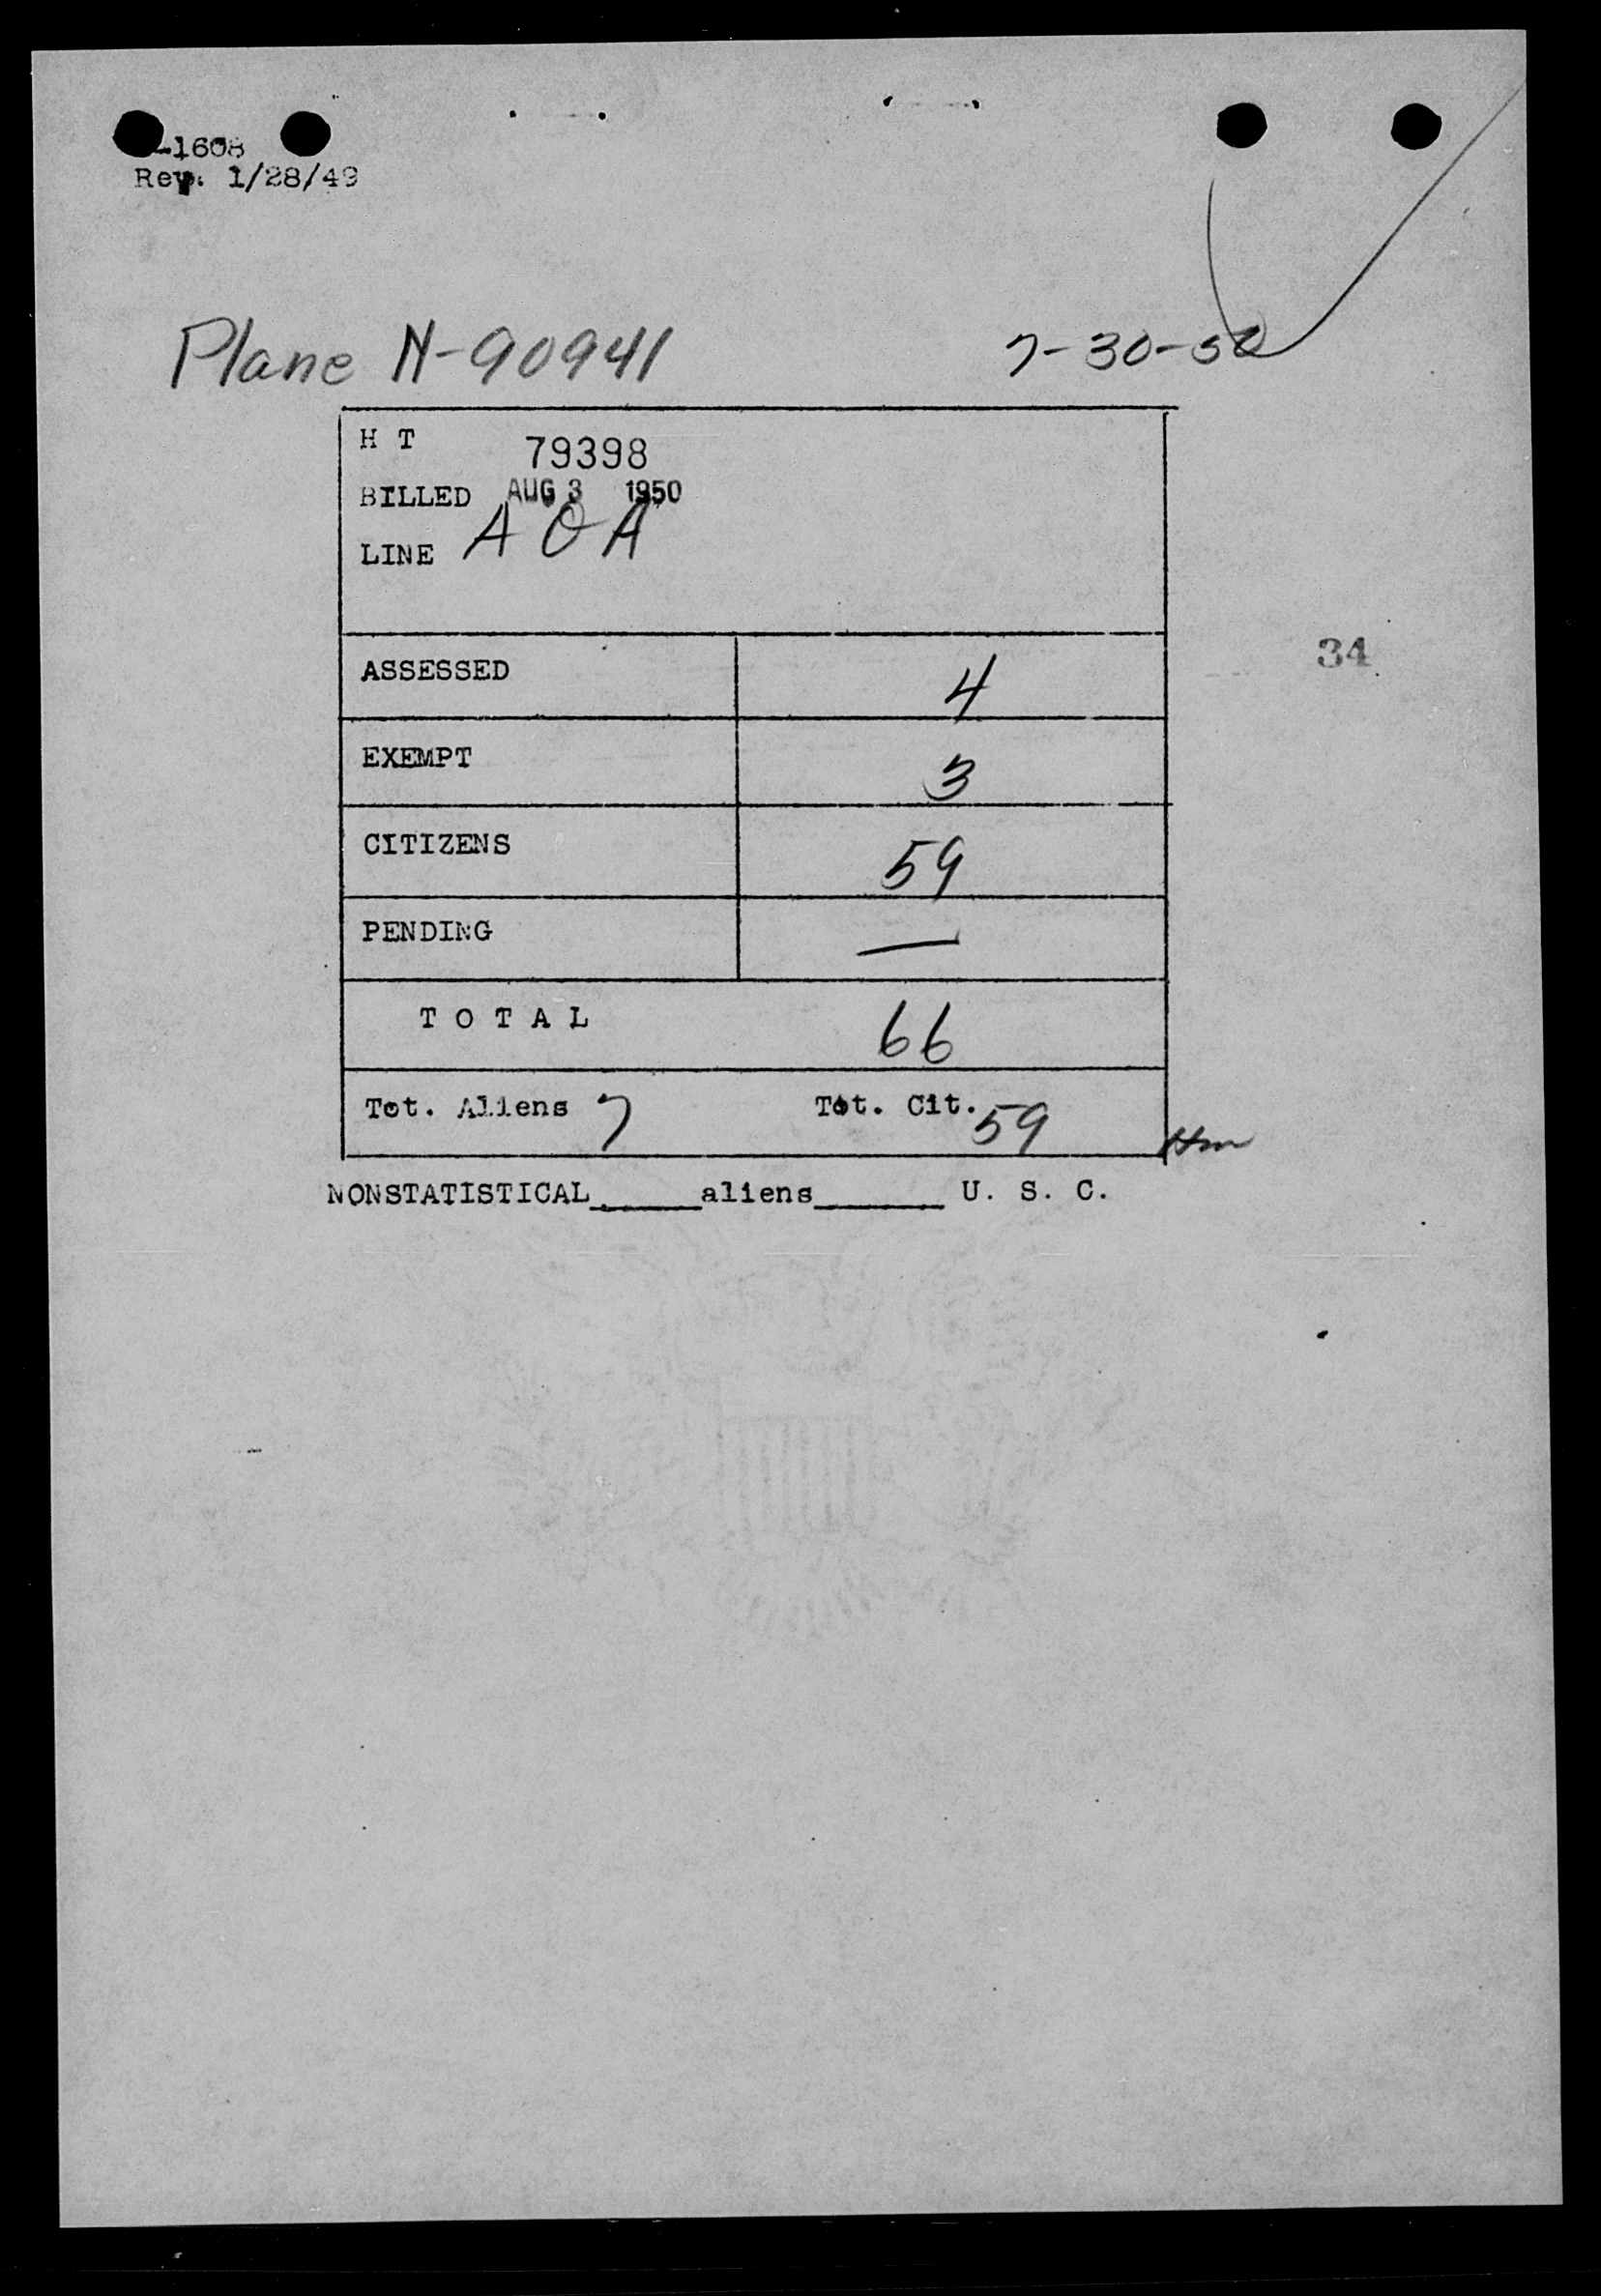 -1608
Rev. 1/28/49
Plane N-90941 7-30-50
H T 79398
BILLED AUG 3 1950
LINE A O A
34
ASSESSED 4
EXEMPT 3
CITIZENS 59
PENDING —
T O T A L 66
Tot. Aliens 7 Tot. Cit. 59
NONSTATISTICAL______aliens_______ U. S. C.